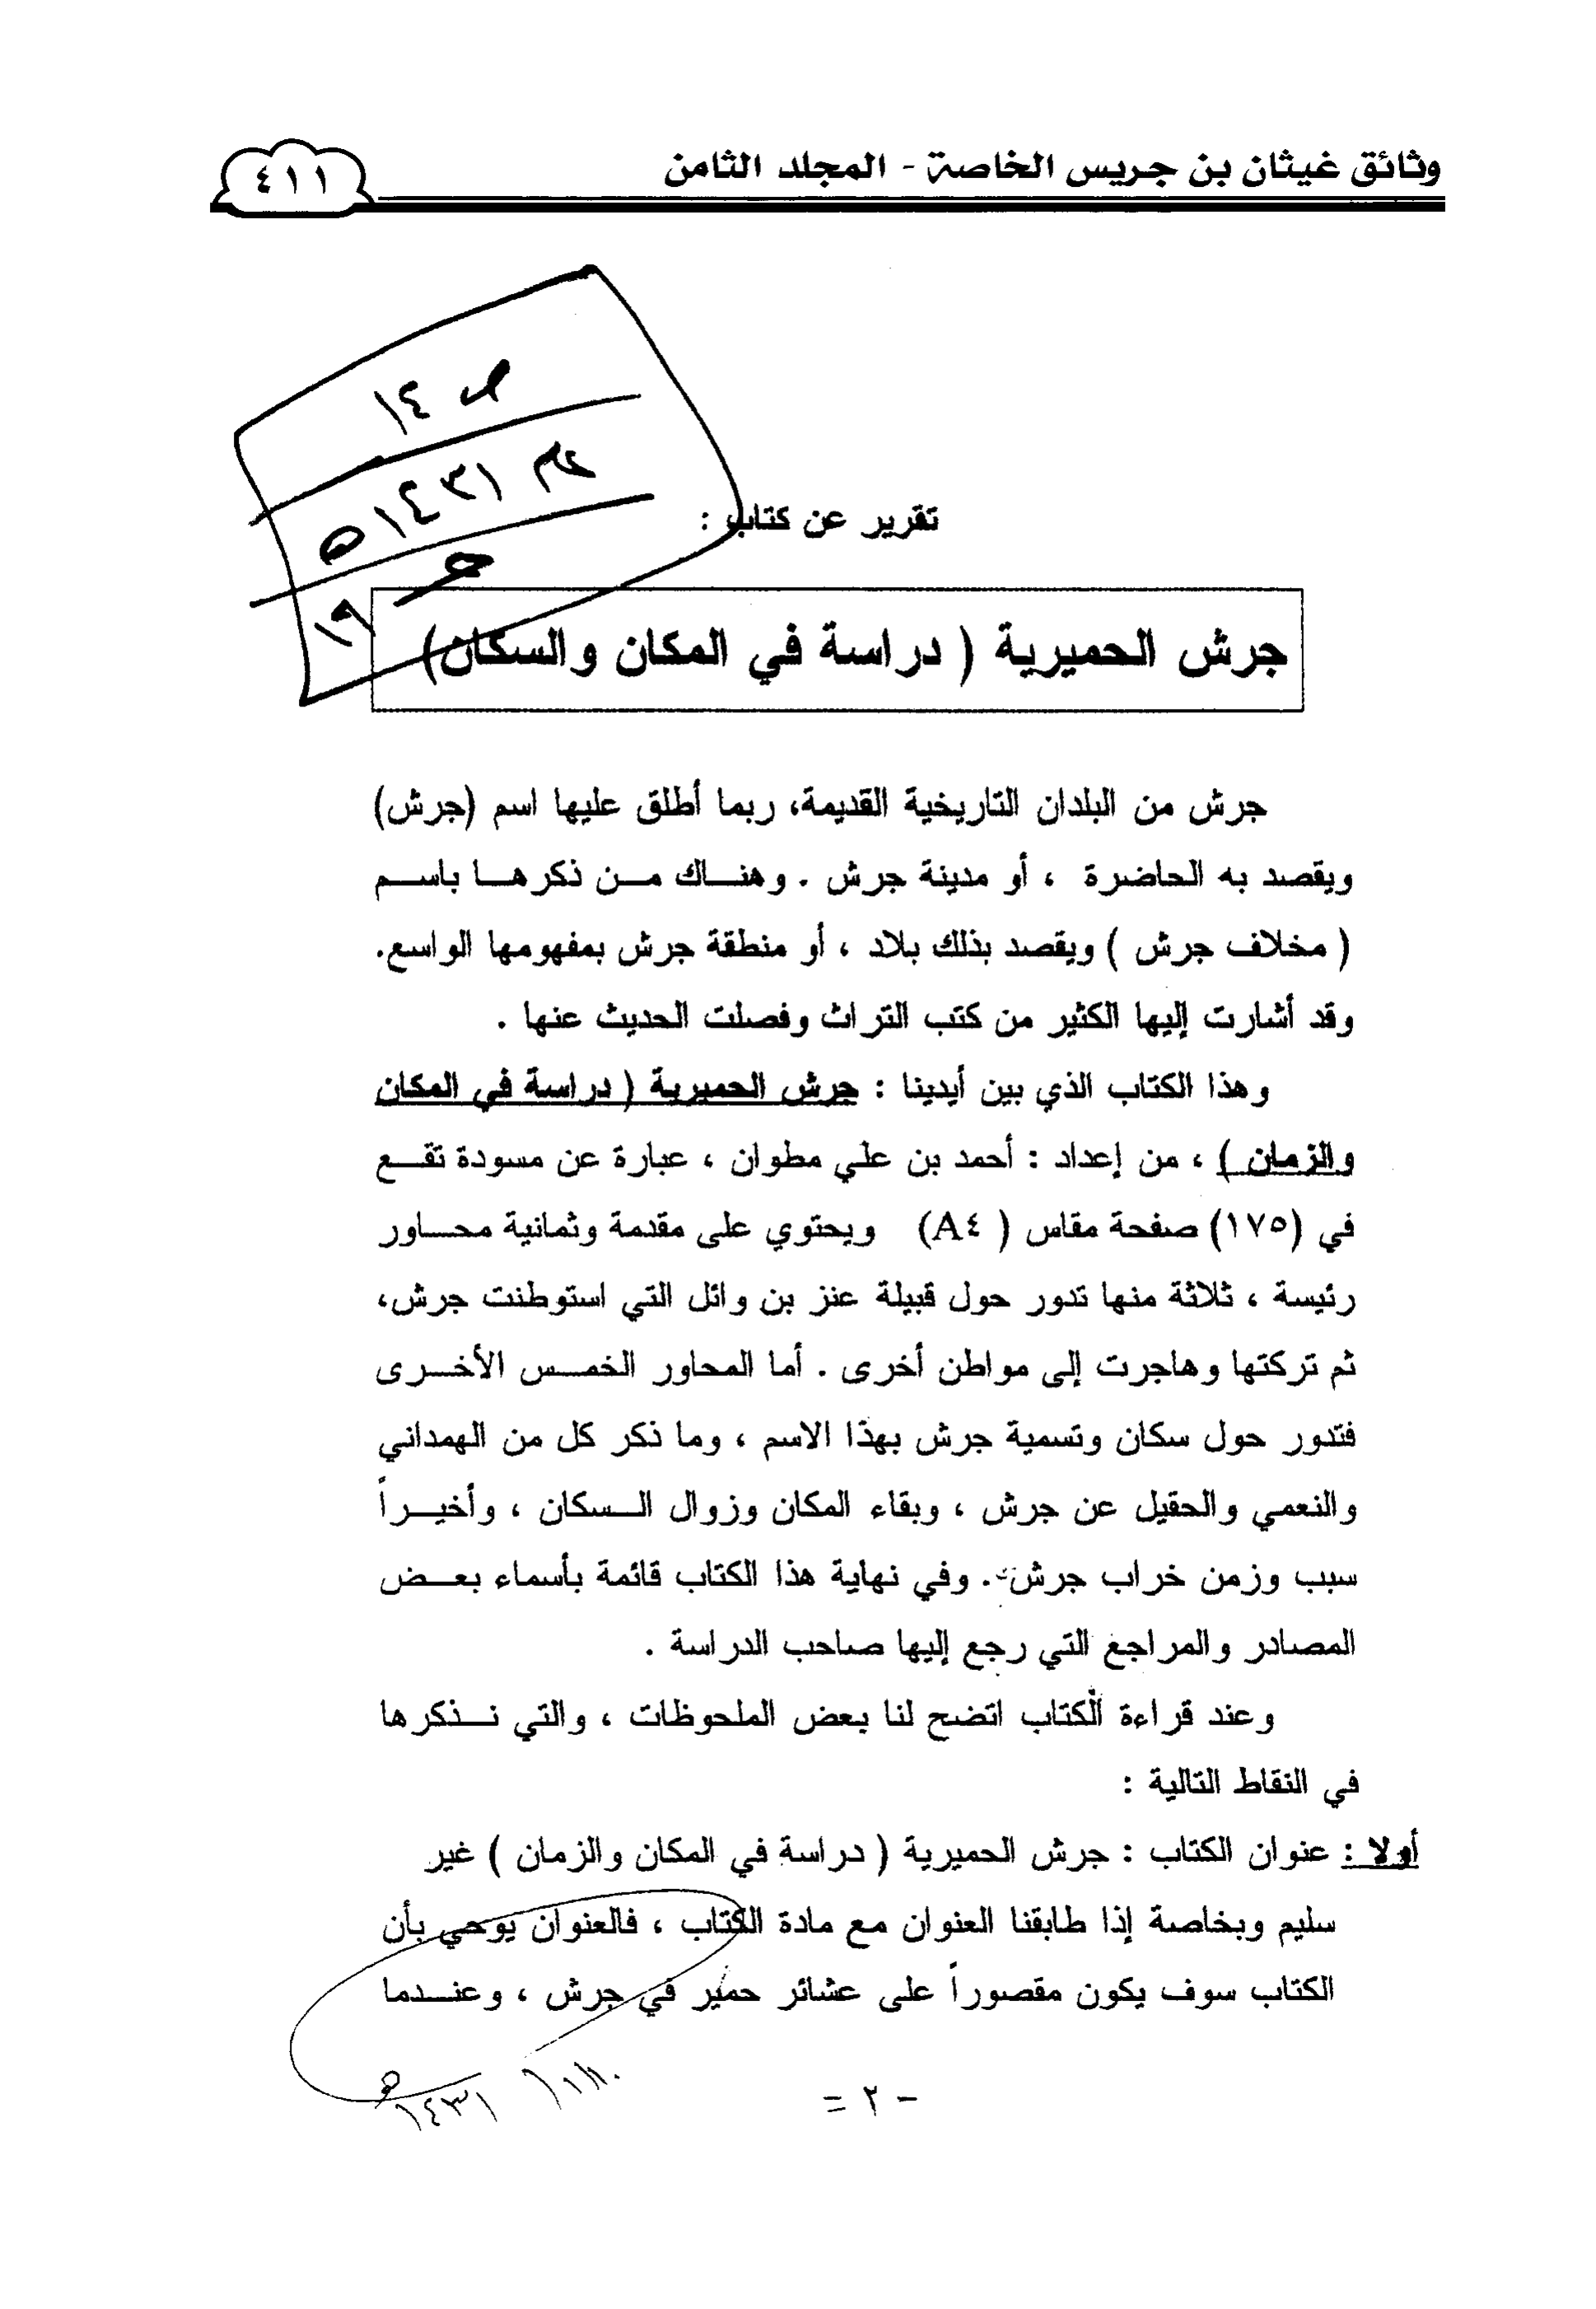 وثائق غيثان بن جريس الخاصة - المجلد الثامن
٤١١
ص ١٤
عام ١٤٣١ ه
ج ١٩
تقرير عن كتاب :
جرش الحميرية ( دراسة في المكان والسكان)
جرش من البلدان التاريخية القديمة، ربما أطلق عليها اسم (جرش)
ويقصد به الحاضرة ، أو مدينة جرش . وهناك من ذكرها باسم
( مخلاف جرش ) ويقصد بذلك بلاد ، أو منطقة جرش بمفهومها الواسع.
وقد أشارت إليها الكثير من كتب التراث وفصلت الحديث عنها .
وهذا الكتاب الذي بين أيدينا : جرش الحميرية ( دراسة في المكان
والزمان ) ، من إعداد : أحمد بن علي مطوان ، عبارة عن مسودة تقع
في (١٧٥) صفحة مقاس ( A٤) ويحتوي على مقدمة وثمانية محاور
رئيسة ، ثلاثة منها تدور حول قبيلة عنز بن وائل التي استوطنت جرش،
ثم تركتها وهاجرت إلى مواطن أخرى . أما المحاور الخمس الأخرى
فتدور حول سكان وتسمية جرش بهذا الاسم ، وما ذكر كل من الهمداني
والنعمي والحقيل عن جرش ، وبقاء المكان وزوال السكان ، وأخيراً
سبب وزمن خراب جرش . وفي نهاية هذا الكتاب قائمة بأسماء بعض
المصادر والمراجع التي رجع إليها صاحب الدراسة .
وعند قراءة الكتاب اتضح لنا بعض الملحوظات ، والتي نذكرها
في النقاط التالية :
أولا : عنوان الكتاب : جرش الحميرية ( دراسة في المكان والزمان ) غير
سليم وبخاصة إذا طابقنا العنوان مع مادة الكتاب ، فالعنوان يوحي بأن
الكتاب سوف يكون مقصوراً على عشائر حمير في جرش ، وعندما
١٤٣١ هـ
- ٢ =